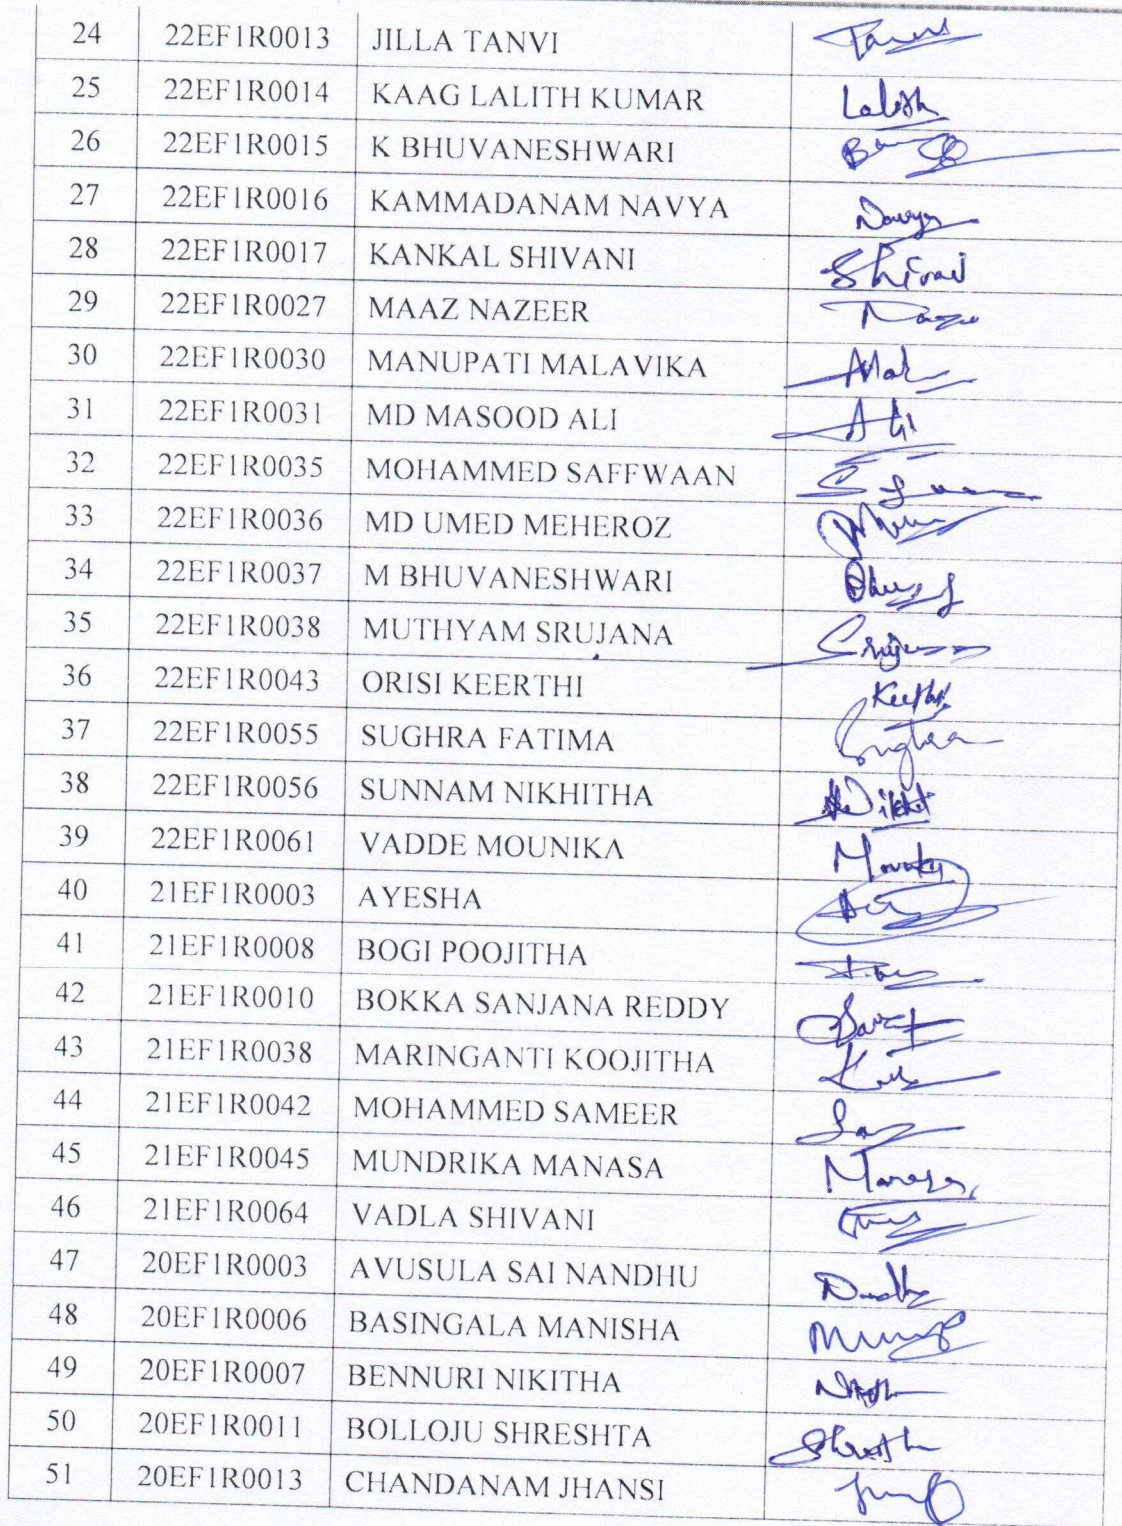 24 22EF1R0013 JILLA TANVI Tanvi
25 22EF1R0014 KAAG LALITH KUMAR Lalith
26 22EF1R0015 K BHUVANESHWARI
27 22EF1R0016 KAMMADANAM NAVYA Navya
28 22EF1R0017 KANKAL SHIVANI Shivani
29 22EF1R0027 MAAZ NAZEER
30 22EF1R0030 MANUPATI MALAVIKA
31 22EF1R0031 MD MASOOD ALI Ali
32 22EF1R0035 MOHAMMED SAFFWAAN
33 22EF1R0036 MD UMED MEHEROZ
34 22EF1R0037 M BHUVANESHWARI
35 22EF1R0038 MUTHYAM SRUJANA
36 22EF1R0043 ORISI KEERTHI
37 22EF1R0055 SUGHRA FATIMA
38 22EF1R0056 SUNNAM NIKHITHA
39 22EF1R0061 VADDE MOUNIKA
40 21EF1R0003 AYESHA
41 21EF1R0008 BOGI POOJITHA
42 21EF1R0010 BOKKA SANJANA REDDY
43 21EF1R0038 MARINGANTI KOOJITHA
44 21EF1R0042 MOHAMMED SAMEER
45 21EF1R0045 MUNDRIKA MANASA Manasa
46 21EF1R0064 VADLA SHIVANI
47 20EF1R0003 AVUSULA SAI NANDHU
48 20EF1R0006 BASINGALA MANISHA
49 20EF1R0007 BENNURI NIKITHA
50 20EF1R0011 BOLLOJU SHRESHTA
51 20EF1R0013 CHANDANAM JHANSI